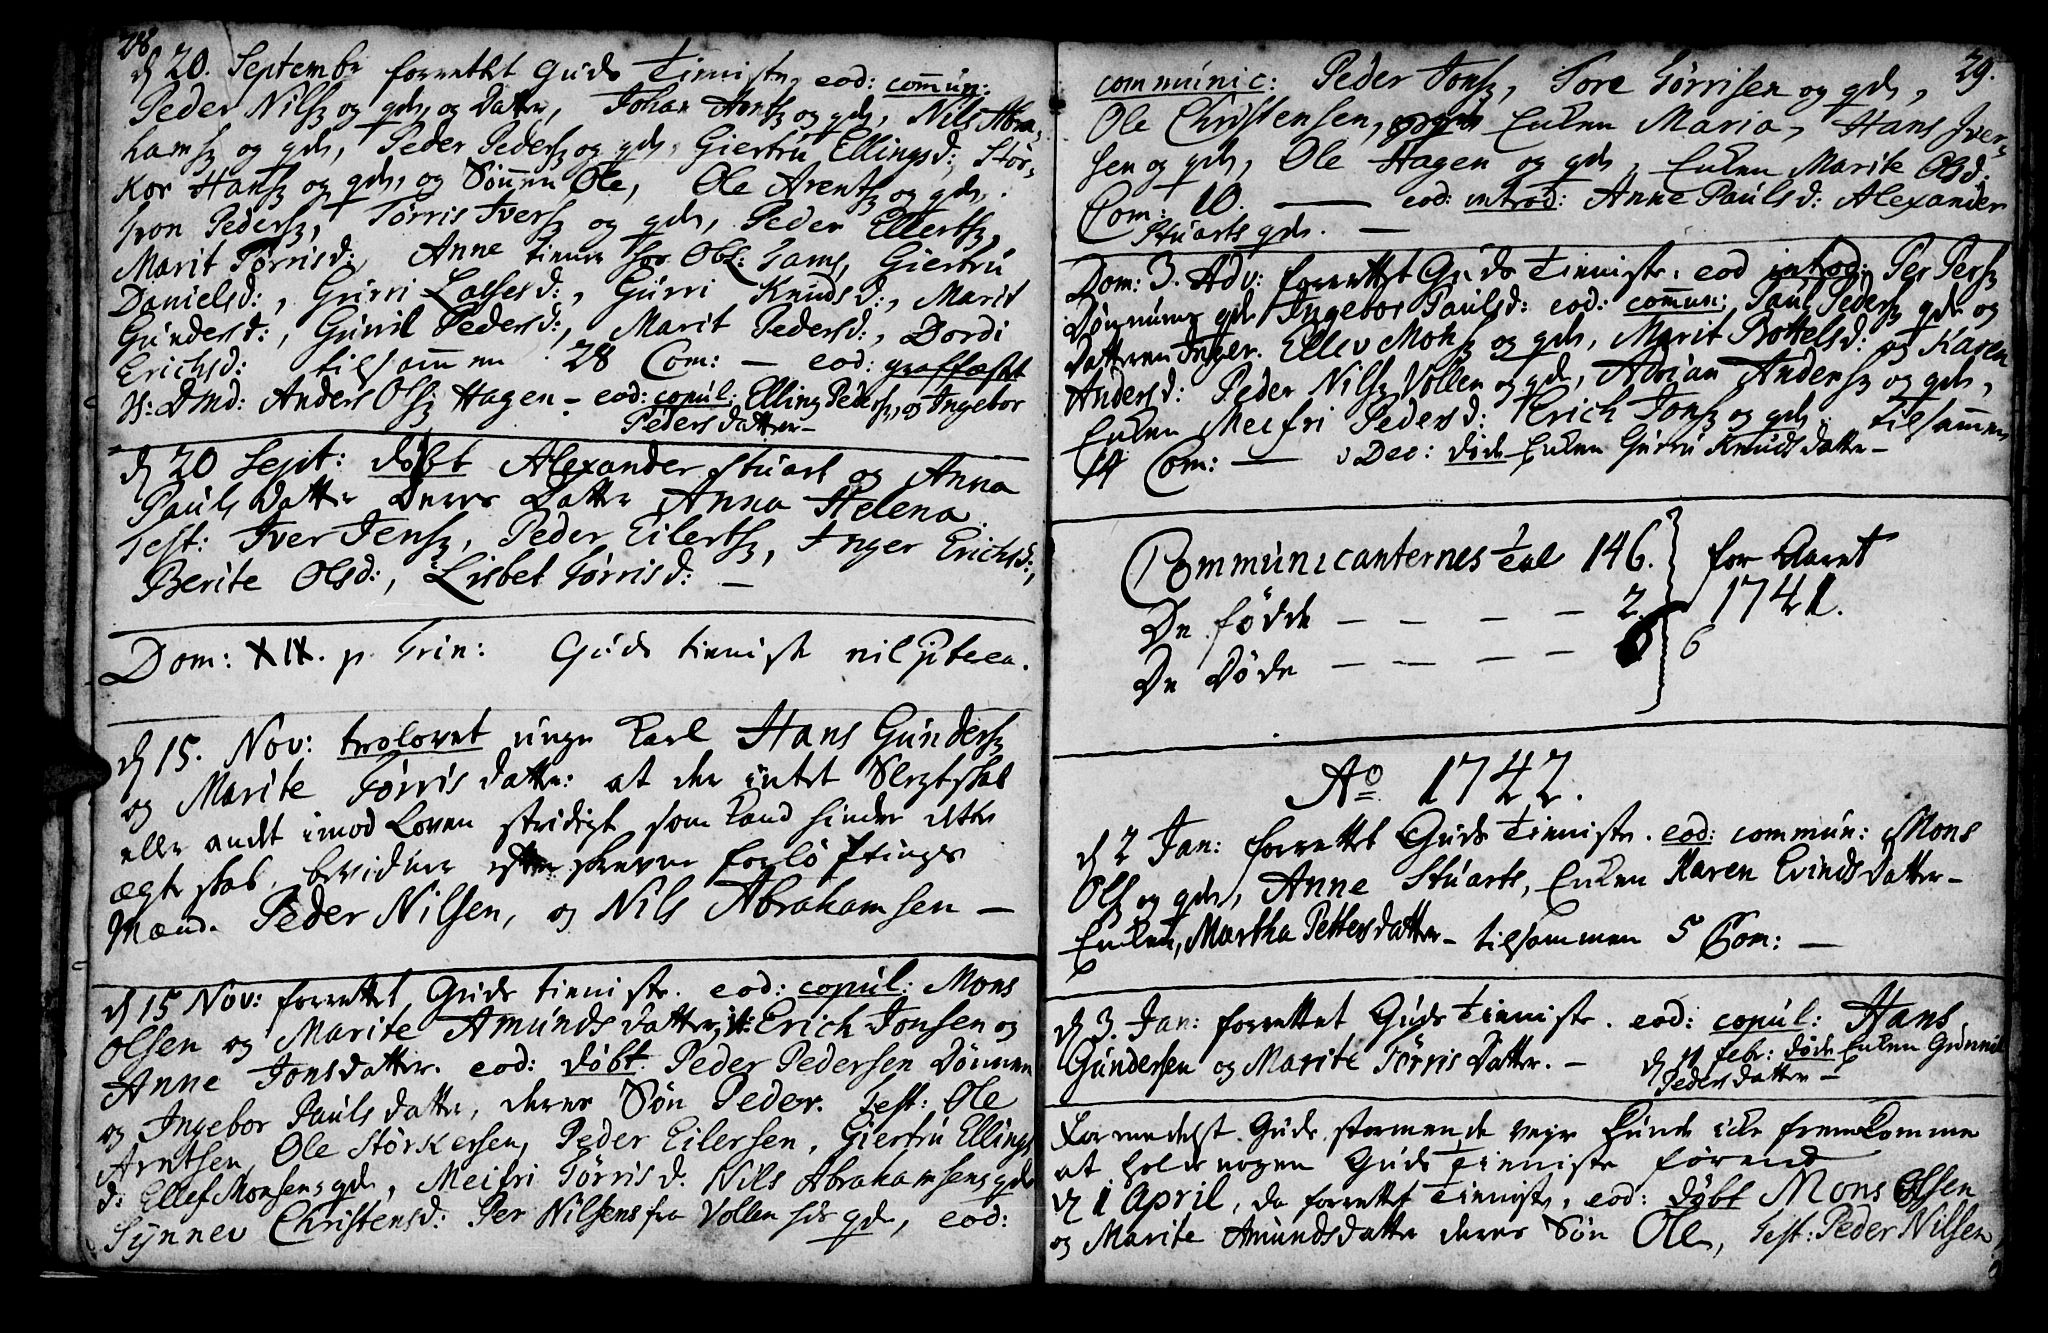 28.
d 20. Septembr forrettet Guds Tieniste, eod: commun:
Peder Nilss og qde, og Datter, Johan Arntss og qde, Nils Abra-
hamss og qde, Peder Pederss og qde, Giertru Ellingsd:, Stör-
kor Hanss og qde, og Sönnen Ole, Ole Arentss og qde,
Iwon Pederss, Törris Iverss og qde, Peder Ellertss,
Marit Törrisd:, Anne tiener hos Giertru
Danielsd:, Gurri Lassesd:, Gurri Knudsd:, Marit
Gundersd:, Gunil Pedersd:, Marit Pedersd:, Dordi
Erichsd: tilsammen 28 Com: — eod: graffæstet
Anders Olss Hagen — eod: copul: Elling Pederss, og Ingebor
Peders datter —
d 20 Sept: döbt Alexander Stuart og Anna
Pauls Datter Deres Datter Anna Helena.
Test: Iver Jenss, Peder Eilertss, Inger Erichsd:,
Berite Olsd:, Lisbet Törrisd: —
Dom: XIX. p. Trin: Guds tieniste
d 15. Nov: trolovet unge Karl Hans Gunderss
og Marite Törris datter: at der intet Slegtskab
eller andt imod Loven stridigt som kand hindre dette
ægteskab, bevidner efterskrevne forlöftnings
Mænd. Peder Nilsen, og Nils Abrahamsen —
d 15 Nov: forrettet Guds tieniste. eod: copul: Mons
Olsen og Marite Amunds datter, it: Erich Jonsen og
Anne Jonsdatter. eod: döbt Peder Pedersen Dönnen
og Ingebor Pauls datter, deres Sön Peder. Test: Ole
Arntsen, Ole Störkersen, Peder Eilersen, Giertru Ellings
d: Ellef Monsens qde, Meifri Törrisd. Nils Abrahamsens qde
Synnev Christensd: Per Nilsens fra Vollen hös qde, eod:
29.
communic: Peder Jonss, Tore Törrisen og qde,
Ole Christensen, Enken Maria, Hans Iver-
sen og qde, Ole Hagen og qde, Enken Marite Olsd.
Com: 10. — eod: introd: Anne Paulsd: Alexander
Stuarts qde. —
Dom: 3. Adv: forrettet Guds Tieniste. eod introd: Per Perss
Dönnums qde Ingebor Paulsd: eod: commun: Paul Pederss qde og
datteren Inger. Ellev Monss og qde, Marit Bottelsd: og Karen
Andersd: Peder Nilss Vollen og qde, Adrian Anderss og qde,
Enken Meifri Pedersd: Erich Jonss og qde tilsammen
14 Com: — Dec: döde Enken Gurru Knuds datter —
Communicanternes Tal 146. } for Aaret
De födde — — — — 2. 1741.
De Döde — — — — 6 6
Ao 1742.
d 2 Jan: forrettet Guds Tieniste. eod: commun: Mons
Olss og qde, Anne Stuarts, Enken Karen Evindsdatter —
Enken, Martha Pettersdatter — tilsammen 5 Com: —
d 3. Jan: forrettet Guds Tieniste. eod: copul: Hans
Gundersen og Marite Törris Datter. —
d 11 febr: döde Enken Gunnil
Pedersdatter —
Formedelst Guds stormende veyr kunde icke fremkomme
at holde nogen Guds Tieniste förend
d 1 April, da forrettet Tieniste, eod: döbt Mons Olsen
og Marite Amundsdatter deres Sön Ole, Test: Peder Nilsen